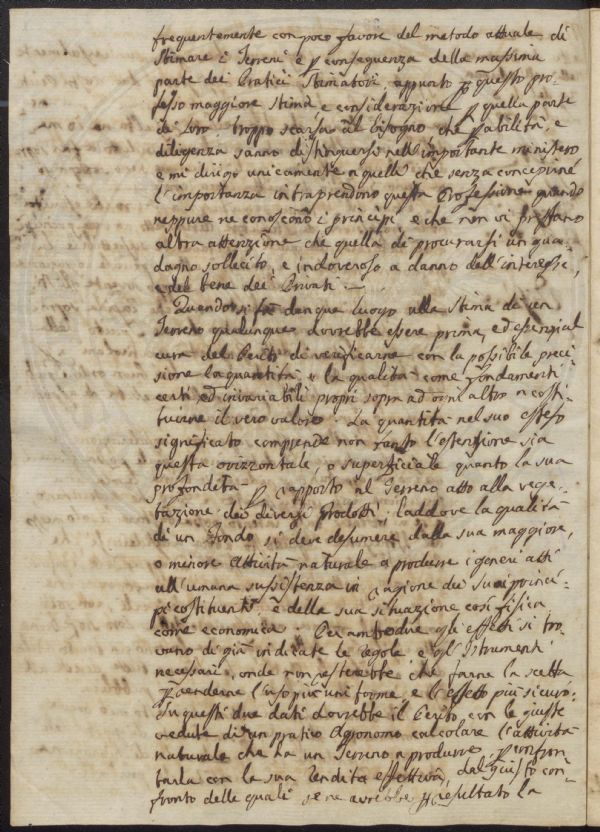 frequentemente con poco favore del metodo attuale di
stimare i Terreni e p conseguenza della massima
parte dei Pratici Stimatori, appunto p questo pro-
fesso maggiore stima, e considerazione p quella parte
di loro, troppo scarsa al bisogno che p abilità, e
diligenza sanno distinguersi nell'importante ministero
e mi dirigo unicamente a quelli che senza concepirne
l'importanza intraprendono questa Professione quando
neppure ne conoscono i principi e che non vi prestano
altra attenzione che quella di procurarsi un gua-
dagno sollecito, e indoveroso a danno dell'interesse,
e del bene dei Privati.
Quandosi fà dunque luogo alla stima di un
Terreno qualunque dovrebbe essere prima, ed essenzial
cura dei Periti di verificarne con la possibile preci-
sione la quantità, e la qualità come fondamenti
certi, ed invariabili propri sopra ad ogni altro a costi-
tuirne il vero valore. La quantità nel suo esteso
significato comprende non tanto l'estensione sia
questa orizzontale, o superficiale quanto la sua
profondità p rapporto al Terreno atto alla vege-
tazione dei diversi Prodotti, laddove la qualità
di un Fondo si deve desumere dalla sua maggiore,
o minore Attività naturale a produrre i generi atti
all'umana sussistenza in ragione dei suoi princi-
pi costituenti, e della sua situazione così fisica
come economica. Per ambedue gli effetti si tro-
vano di già indicate le regole e gl'Istrumenti
necessari, onde non resterebbe che farne la scelta
p renderne l'uso più uniforme e l'effetto più sicuro.
Su questi due dati dovrebbe il Perito, con le giuste
vedute di un pratico Agronomo calcolare l'attività
naturale che ha un Terreno a produrre, p confron-
tarla con la sua rendita effettiva, dal quisto con-
fronto delle quali se ne avrebbe p resultato la